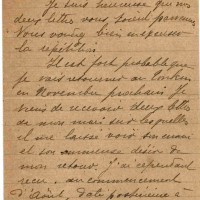 Je suis heureuse que mes
deux lettres vous soient parvenues
Vous voudrez bien
la répétition
Il est fort probable que
je vais retourner au
en Novembre prochain. Je
viens de recevoir deux lettres
de mon mari sur lesquelles
il me laisse voir
et son désir de
mon retour. J'ai cependant
reçu au commencement
d'Août, date postérieure à